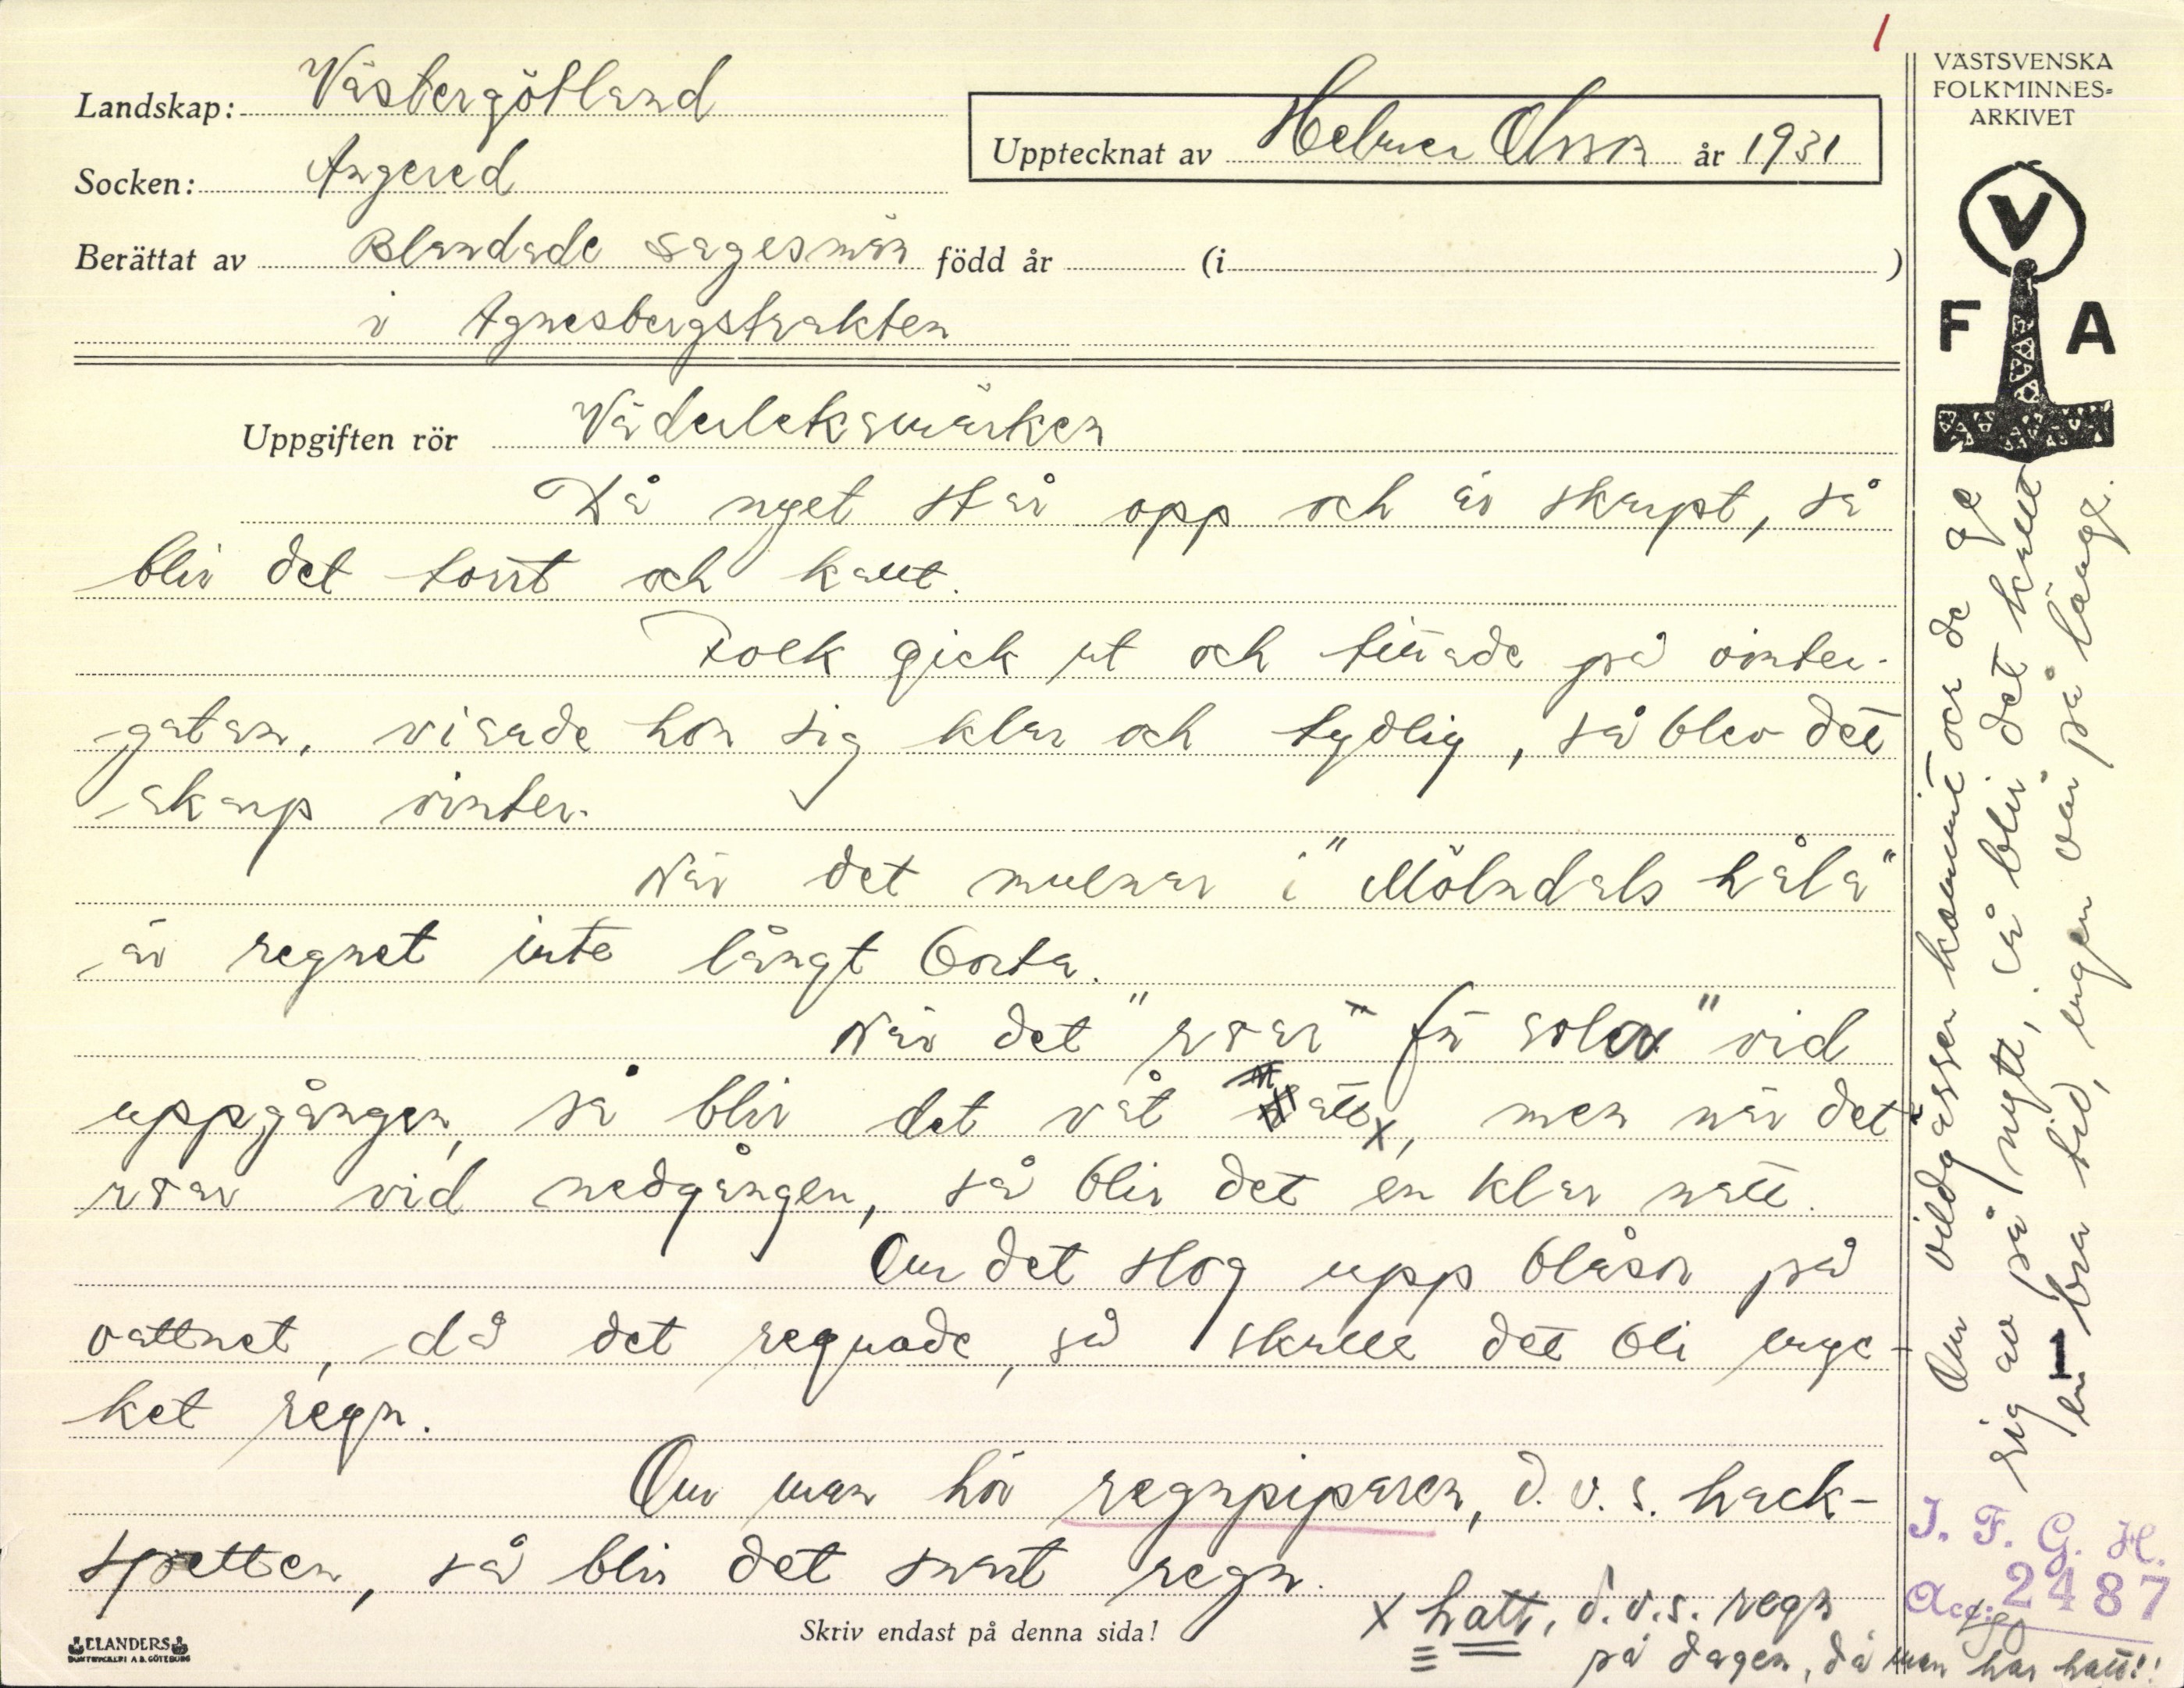 1
VÄSTSVENSKA
FOLKMINNES-
ARKIVET
V
F A
Landskap: Västergötland
Socken: Angered
Upptecknat av Helmer Olsson år 1931
Berättat av Blandade sagesmän född år (i )
i Agnesbergstrakten
Uppgiften rör Väderleksmärken
Då nyet står opp och är skarpt, så
blir det torrt och kallt.
Folk gick ut och tittade på vinter-
gatan, visade hon sig klar och tydlig, så blev det
skarp vinter.
När det mulnar i "Mölndals håla"
är regnet inte långt borta.
När det "roar" fö solen" vid
uppgången, så blir det våt hattx, men när det
roar vid nedgången, så blir det en klar natt.
Om det slog upp blåsor på
vattnet, då det regnade, så skulle det bli myc-
ket regn.
Om man hör regnpiparen, d.v.s. hack-
spetten, så blir det snart regn.
x hatt, d.v.s. regn
på dagen, då man har hatt!!
Om vildgässen kommit och de ge
sig av på nytt, så blir det kallt
en bra tid, ingen vår på länge.
I. F. G. H.
Acc. 2487
Skriv endast på denna sida!
ELANDERS
BOKTRYCKERI A.B. GÖTEBORG